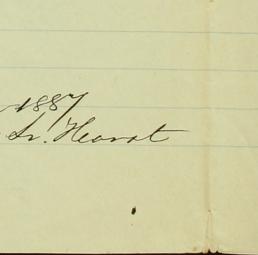 1887
Sr. Hearst